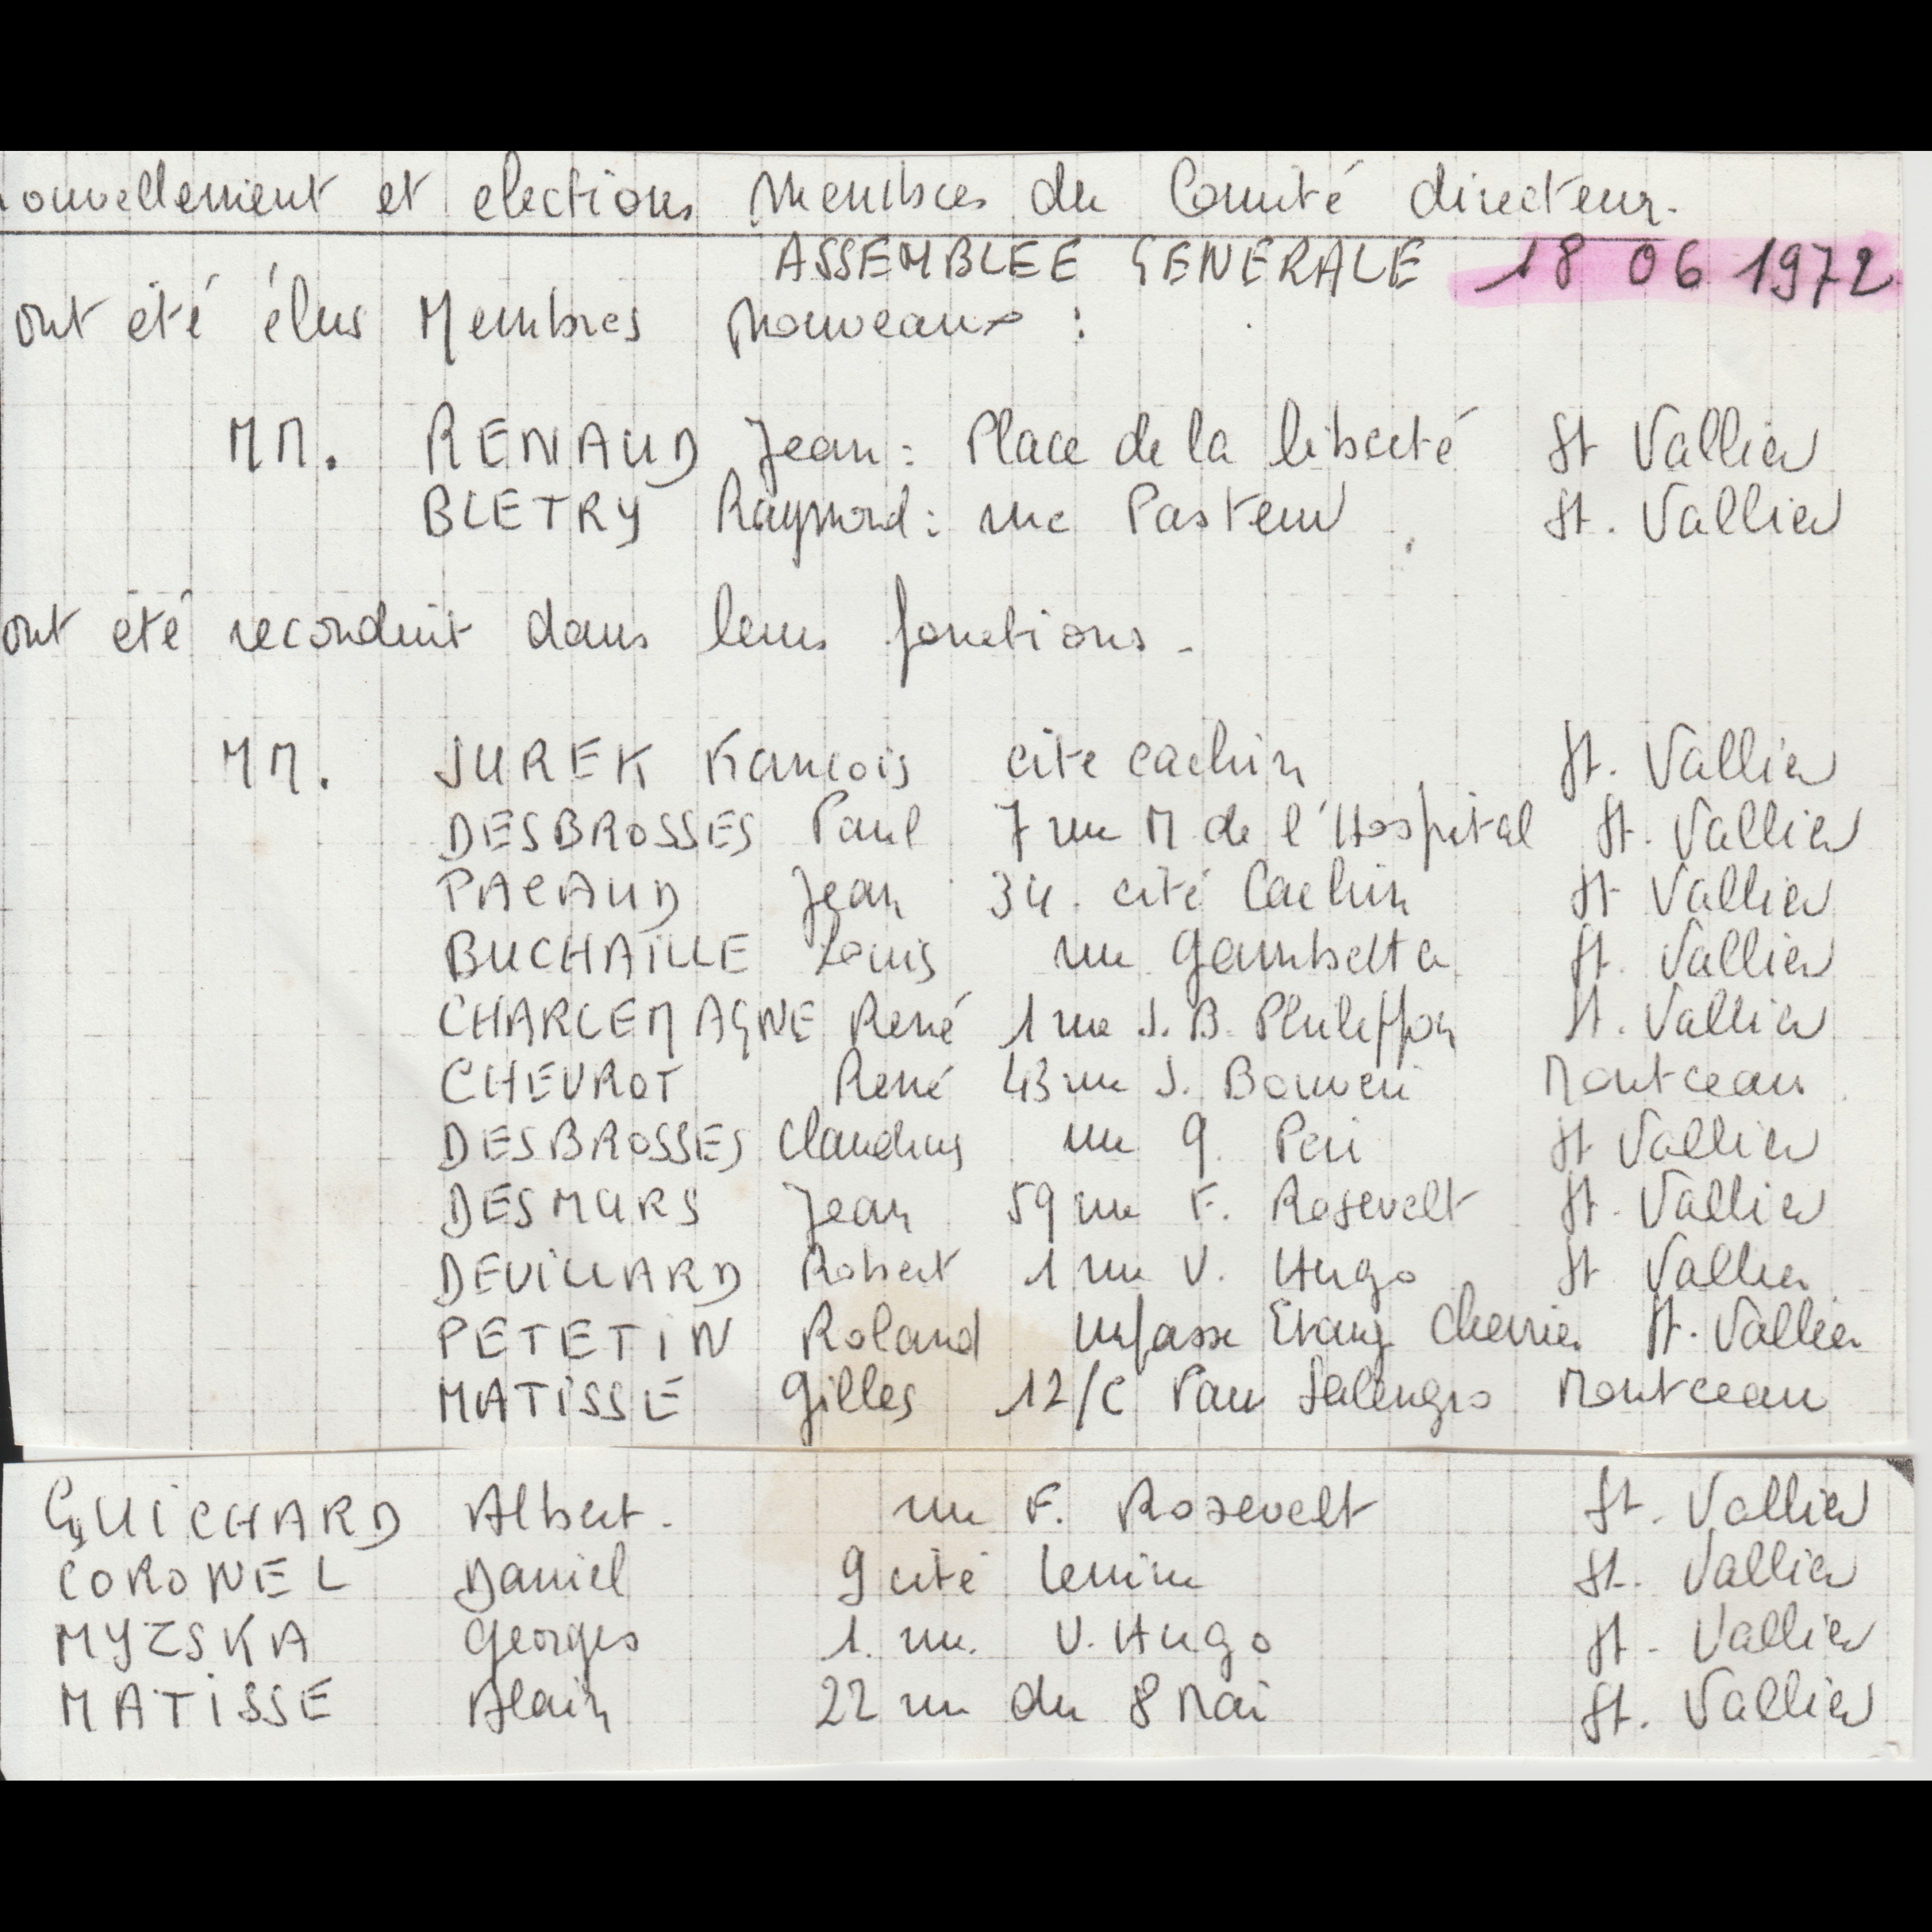 nouvellement et elections Membres du Comité directeur.
ASSEMBLEE GENERALE 18 06 1972
ont été élus Membres nouveaux :
MM. RENAUD Jean : Place de la liberté St Vallier
BLETRY Raymond : rue Pasteur St. Vallier
ont été reconduit dans leurs fonctions.
MM. JUREK Francois cite cachin St. Vallier
DESBROSSES Paul 7 rue M de l'Hospital St. Vallier
PACAUD Jean 34. cité Cachin St Vallier
BUCHAILLE Louis rue Gambetta St. Vallier
CHARLEMAGNE René 1 rue J. B. Philippon St. Vallier
CHEVROT René 43 rue J. Bouveri Montceau
DESBROSSES Claudius rue G. Peri St Vallier
DESMURS Jean 59 rue F. Rosevelt St. Vallier
DEVILLARD Robert 1 rue V. Hugo St Vallier
PETETIN Roland impasse Etang Cherrier St. Vallier
MATISSE Gilles 12/C Salengro Montceau
GUICHARD Albert. rue F. Rosevelt St. Vallier
CORONEL Daniel 9 cité Lenine St. Vallier
MYZSKA Georges 1. rue. V. Hugo St. Vallier
MATISSE Alain 22 rue du 8 Mai St. Vallier